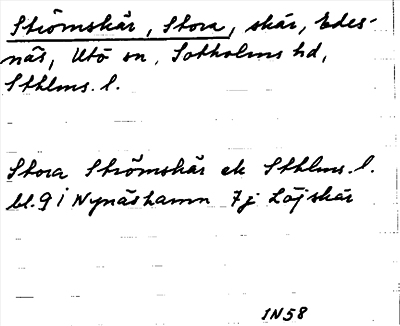 Strömskär, Stora, skär, Edes-
näs, Utö sn, Sotholms hd,
Sthlms. l.
Stora Strömskär ek Sthlms. l.
bl. 9 i Nynäshamn 7j Löjskär
1N58